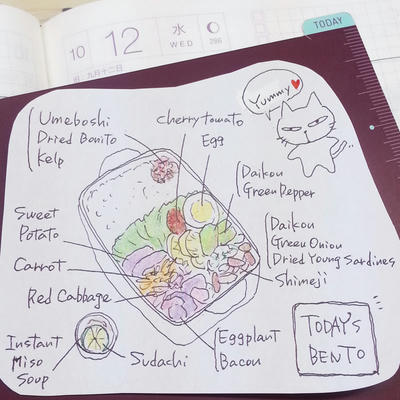 TODAY
10
12
水
WED
286
旧. 九月十二日
Yummy
Umeboshi
Dried Bonito
Kelp
Cherry tomato
Egg
Daikou
Green Pepper
Sweet
Potato
Daikou
Green Oniou
Dried Young Sardines
Shimeji
Carrot
Red Cabbage
Instant
Miso
Soup
Sudachi
Eggplant
Bacou
TODAY'S
BENTO